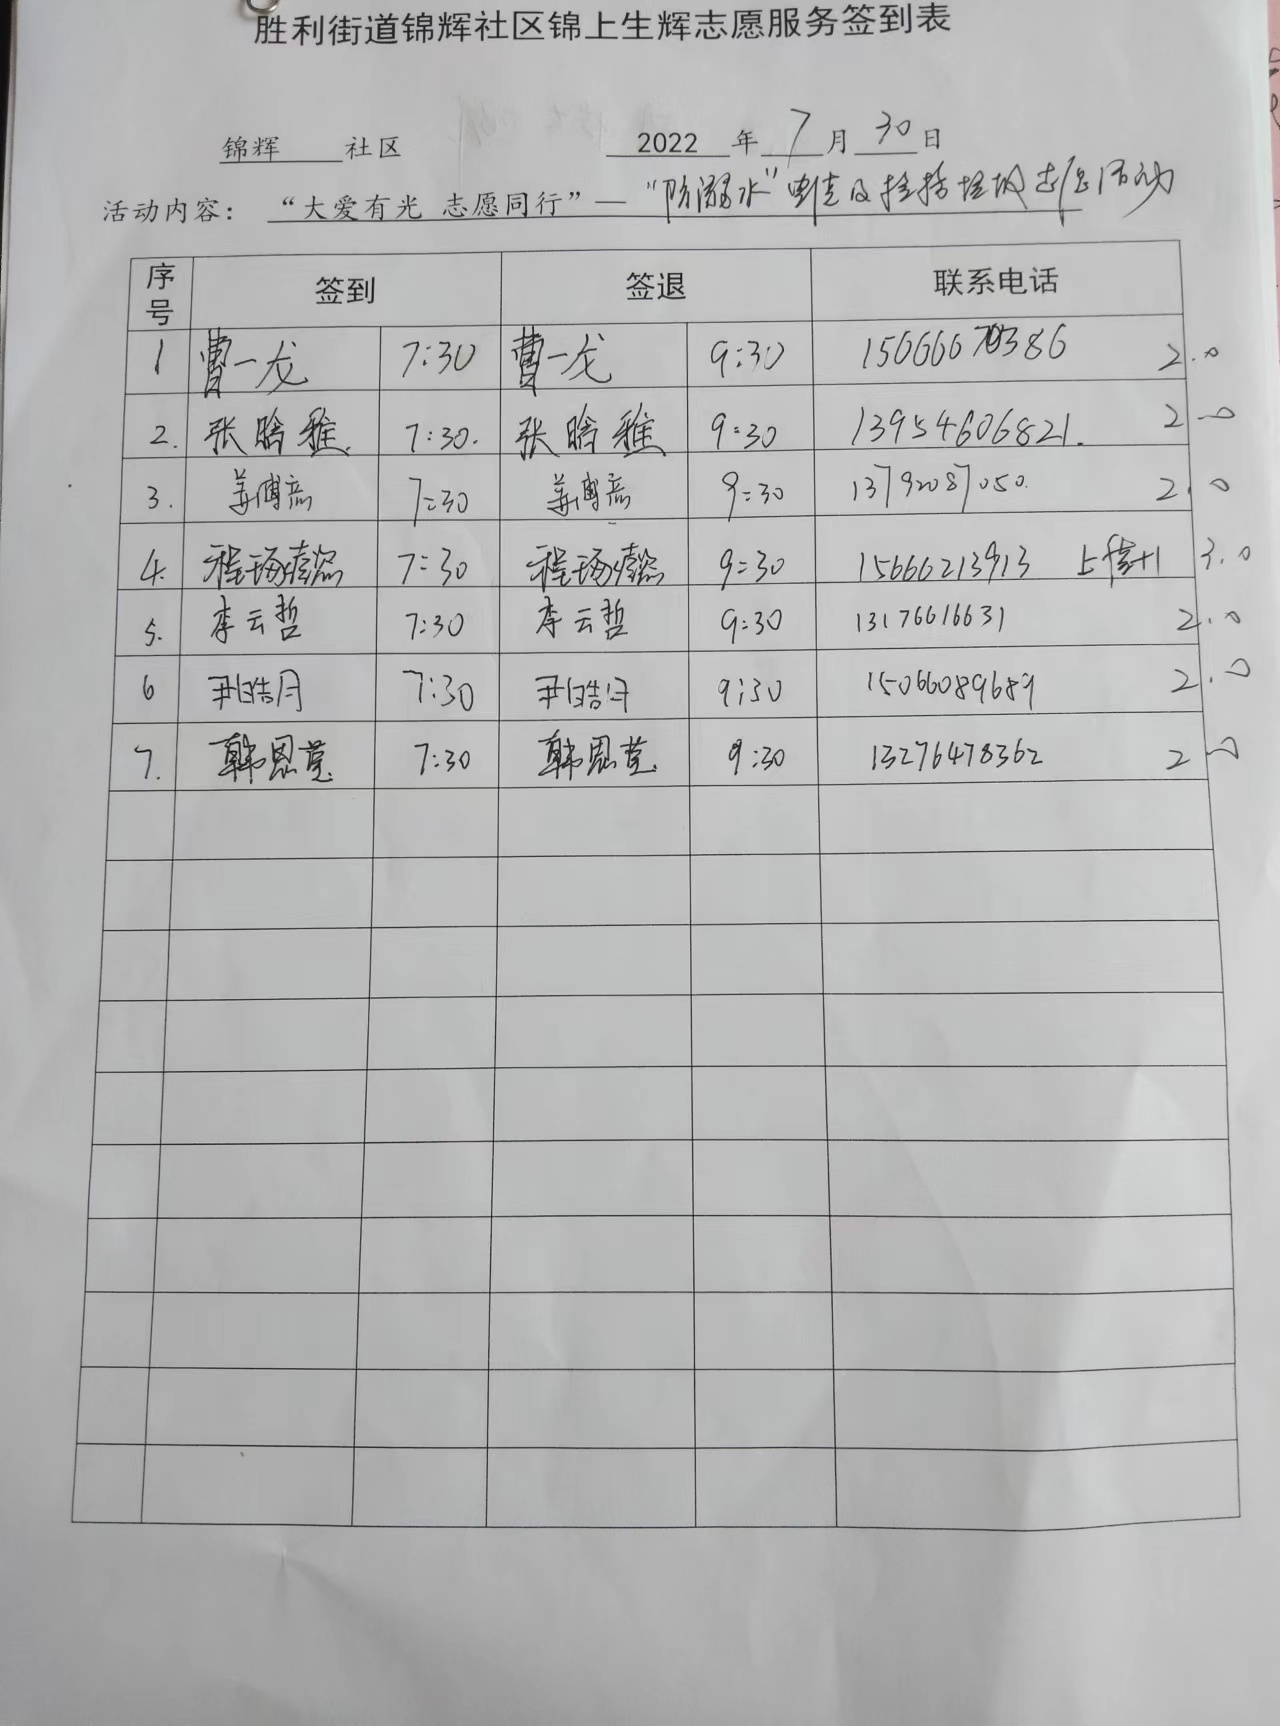 胜利街道锦辉社区锦上生辉志愿服务签到表
锦辉 社区 2022 年 7 月 30 日
活动内容：“大爱有光 志愿同行”—“防溺水”宣传及捡拾垃圾志愿活动
序号 签到 签退 联系电话
1 曹一龙 7:30 曹一龙 9:30 2.0
2. 张晗雅 7:30. 张晗雅 9:30 13954606821. 2.0
3. 姜博 7:30 姜博 9:30 13792087050. 2.0
4. 程 7:30 程 9:30 15666213913 上传+1 3.0
5. 李云哲 7:30 李云哲 9:30 13176616631 2.0
6 尹皓月 7:30 尹皓月 9:30 15066089689 2.0
7. 韩恩莹 7:30 韩恩莹 9:30 13276478362 2.0